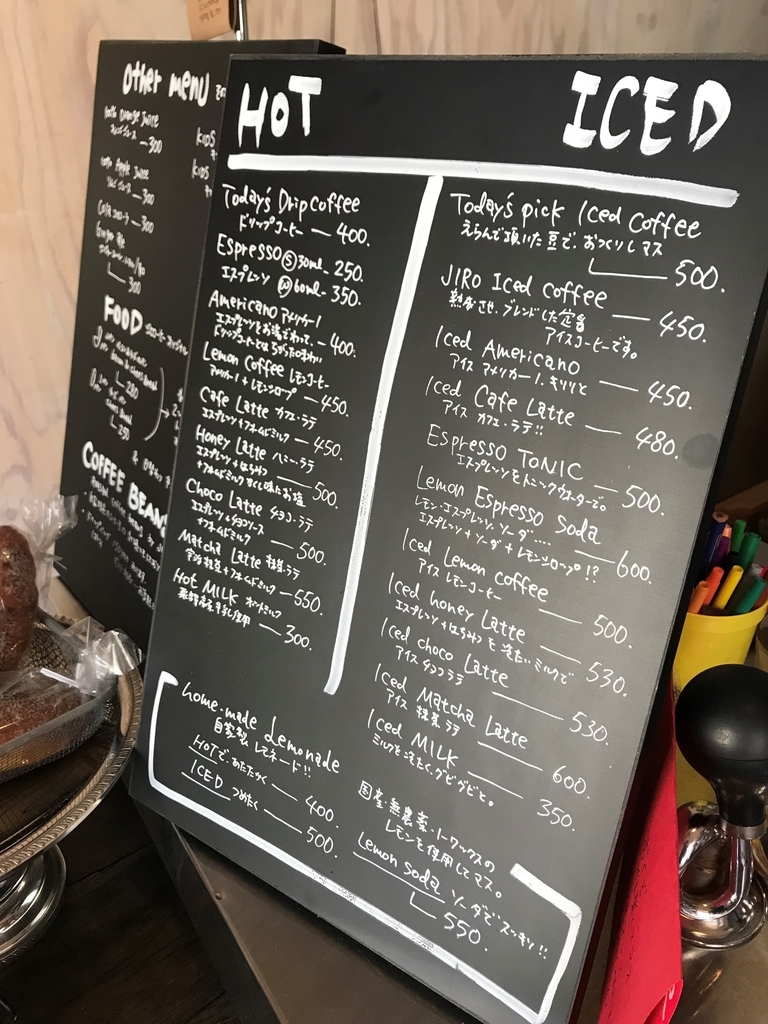 Other menu
100% Orange Juice
オレンジジュース — 300
100% Apple Juice
— 300
Cola コーラ — 300
Ginger Ale
300
KIDS
KIDS
FOOD
250
COFFEE BEANS
HOT
Today's Drip coffee
ドリップコーヒー — 400.
Espresso Ⓢ 30ml. 250.
エスプレッソ Ⓦ 60ml. 350.
Americano アメリカーノ
エスプレッソをお湯でわって、 — 400.
ドリップコーヒーとはちがった味わい
Lemon Coffee レモンコーヒー
アメリカーノ + レモンシロップ — 450.
Cafe Latte カフェ・ラテ
エスプレッソ + フォームドミルク — 450.
Honey Latte ハニー・ラテ
エスプレッソ + はちみつ — 500.
+ フォームドミルク
Choco Latte チョコ・ラテ
エスプレッソ + チョコソース — 500.
+ フォームドミルク
Matcha Latte 抹茶・ラテ
宇治抹茶 + フォームドミルク — 550.
Hot MILK ホットミルク
使用 — 300.
ICED
Today's pick Iced Coffee
えらんで頂いた豆で、おつくりしマス
500.
JIRO Iced coffee
熟成させ、ブレンドした定番 — 450.
アイスコーヒーです。
Iced Americano
アイス アメリカーノ. キリリと — 450.
Iced Cafe Latte
アイス カフェ・ラテ!! — 480.
Espresso TONIC
エスプレッソをトニックウォーターで。 — 500.
Lemon Espresso Soda
レモン・エスプレッソ・ソーダ....
エスプレッソ + ソーダ + レモンシロップ!? — 600.
Iced Lemon coffee
アイス レモンコーヒー — 500.
Iced honey Latte
エスプレッソ + はちみつ を 冷たいミルクで — 530.
Iced choco Latte
アイス チョコラテ — 530.
Iced Matcha Latte
アイス 抹茶・ラテ — 600.
Iced MILK
ミルクを冷たく、グビグビと。 — 350.
home-made Lemonade
自家製 レモネード!!
HOTで、あたたかく — 400.
ICED つめたく — 500.
国産・無農薬・ノーワックスの
レモンを使用してマス。
Lemon Soda ソーダでスッキリ!!
550.